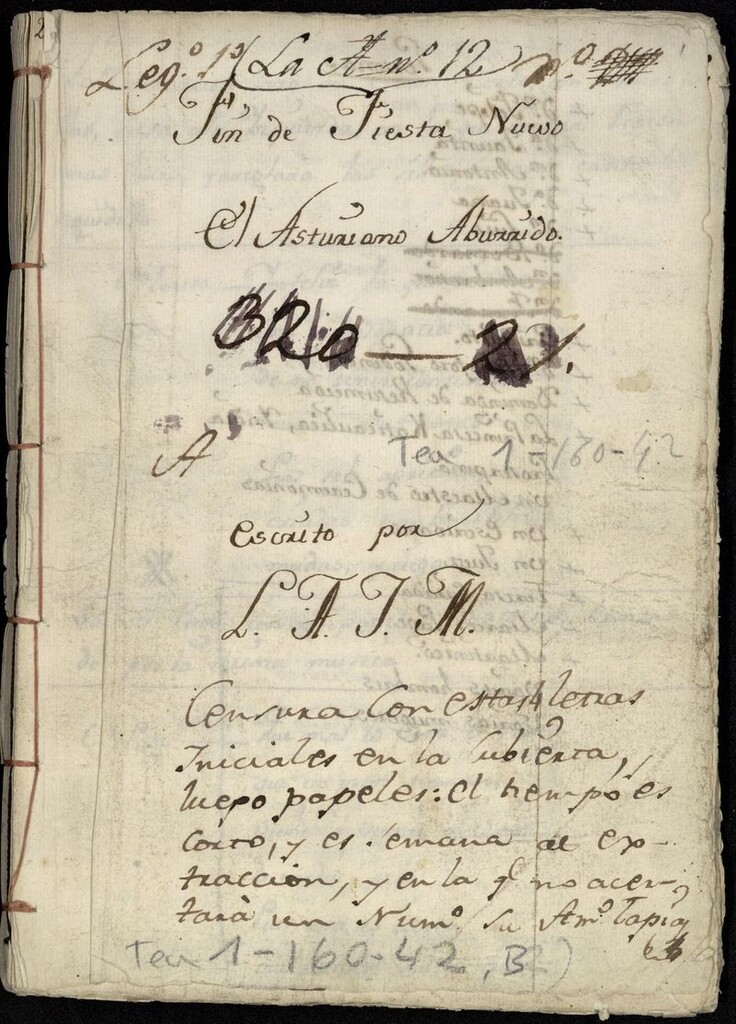 2
Leg.º 1º La A nº 12 n.º
Fin de Fiesta Nuevo
El Asturiano Aburrido.
320 — 21.
A
Tea 1-160-42
escrito por
L. A. J. M.
Censura con estas 4 letras
Iniciales en la Cubierta,
luego papeles: el tiempo es
corto, y es semana de ex-
tracción, y en la q. no acer-
tarà un Numº su Amº Tapia
Tea 1-160-42, B)